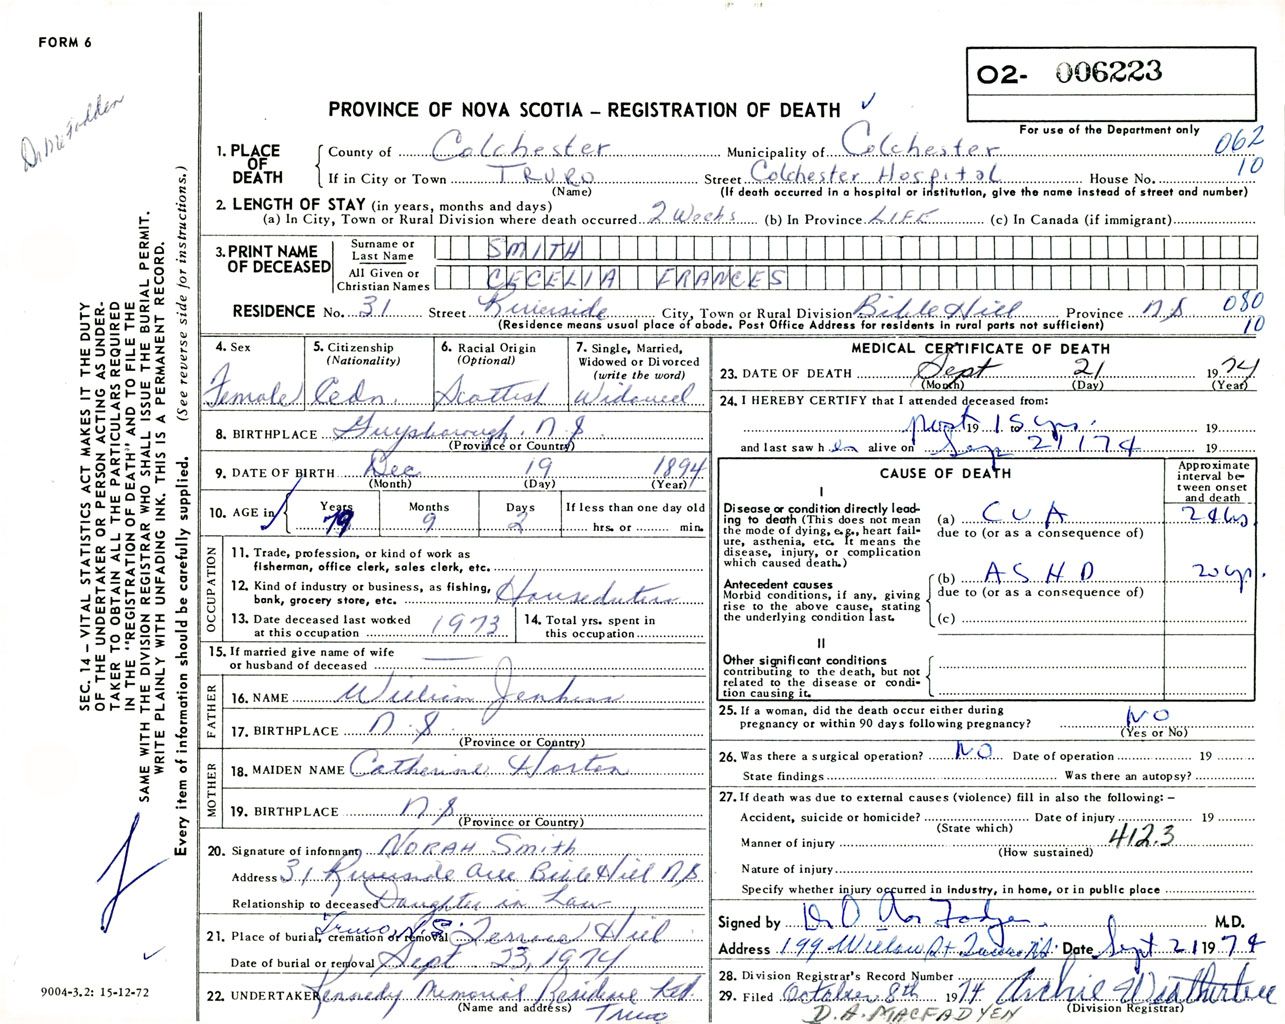 FORM 6
Dr McFadden
O2- 006223
PROVINCE OF NOVA SCOTIA – REGISTRATION OF DEATH
For use of the Department only
1. PLACE OF DEATH
County of Colchester Municipality of Colchester 062
If in City or Town TRURO Street Colchester Hospital House No. 10
(Name) (If death occurred in a hospital or institution, give the name instead of street and number)
2. LENGTH OF STAY (in years, months and days)
(a) In City, Town or Rural Division where death occurred 2 Weeks (b) In Province LIFE (c) In Canada (if immigrant)
3. PRINT NAME OF DECEASED
Surname or Last Name SMITH
All Given or Christian Names CECELIA FRANCES
RESIDENCE No. 31 Street Riverside City, Town or Rural Division Bible Hill Province N S 080
(Residence means usual place of abode. Post Office Address for residents in rural parts not sufficient) 10
4. Sex Female
5. Citizenship (Nationality) Cedn.
6. Racial Origin (Optional) Scottish
7. Single, Married, Widowed or Divorced (write the word) Widowed
8. BIRTHPLACE Guysborough, N S
(Province or Country)
9. DATE OF BIRTH Dec. 19 1894
(Month) (Day) (Year)
10. AGE in Years 79 Months 9 Days 2 If less than one day old hrs. or min.
OCCUPATION
11. Trade, profession, or kind of work as fisherman, office clerk, sales clerk, etc.
12. Kind of industry or business, as fishing, bank, grocery store, etc. Houseduties
13. Date deceased last worked at this occupation 1973
14. Total yrs. spent in this occupation
15. If married give name of wife or husband of deceased —
FATHER
16. NAME William Jenkins
17. BIRTHPLACE N S
(Province or Country)
MOTHER
18. MAIDEN NAME Catherine Horton
19. BIRTHPLACE N S
(Province or Country)
20. Signature of informant NORAH Smith
Address 31 Riverside Ave Bible Hill N S
Relationship to deceased Daughter in Law
21. Place of burial, cremation or removal Truro N.S. Terrace Hill
Date of burial or removal Sept 23, 1974
22. UNDERTAKER Kennedy Memorial Residence Ltd.
(Name and address) Truro
MEDICAL CERTIFICATE OF DEATH
23. DATE OF DEATH Sept 21 1974
(Month) (Day) (Year)
24. I HEREBY CERTIFY that I attended deceased from:
past 19 15 to yrs. 19
and last saw h er alive on Sep 21 174 19
CAUSE OF DEATH
Approximate interval between onset and death
I
Disease or condition directly leading to death (This does not mean the mode of dying, e.g., heart failure, asthenia, etc. It means the disease, injury, or complication which caused death.)
(a) C V A 24 hs
due to (or as a consequence of)
Antecedent causes
Morbid conditions, if any, giving rise to the above cause, stating the underlying condition last.
(b) A S H D 20 yr.
due to (or as a consequence of)
(c)
II
Other significant conditions contributing to the death, but not related to the disease or condition causing it.
25. If a woman, did the death occur either during pregnancy or within 90 days following pregnancy? NO
(Yes or No)
26. Was there a surgical operation? NO Date of operation 19
State findings Was there an autopsy?
27. If death was due to external causes (violence) fill in also the following: –
Accident, suicide or homicide? Date of injury 19
(State which)
Manner of injury 412.3
(How sustained)
Nature of injury
Specify whether injury occurred in industry, in home, or in public place
Signed by Dr D A Mac Fadyen M.D.
Address 199 Willow St Truro N.S. Date Sept 21 1974
28. Division Registrar's Record Number
29. Filed October 8th 1974 Archie Weatherbee
(Division Registrar)
D. A. MACFADYEN
SEC. 14 – VITAL STATISTICS ACT MAKES IT THE DUTY
OF THE UNDERTAKER OR PERSON ACTING AS UNDER-
TAKER TO OBTAIN ALL THE PARTICULARS REQUIRED
IN THE "REGISTRATION OF DEATH" AND TO FILE THE
SAME WITH THE DIVISION REGISTRAR WHO SHALL ISSUE THE BURIAL PERMIT.
WRITE PLAINLY WITH UNFADING INK. THIS IS A PERMANENT RECORD.
Every item of information should be carefully supplied. (See reverse side for instructions.)
9004-3.2: 15-12-72